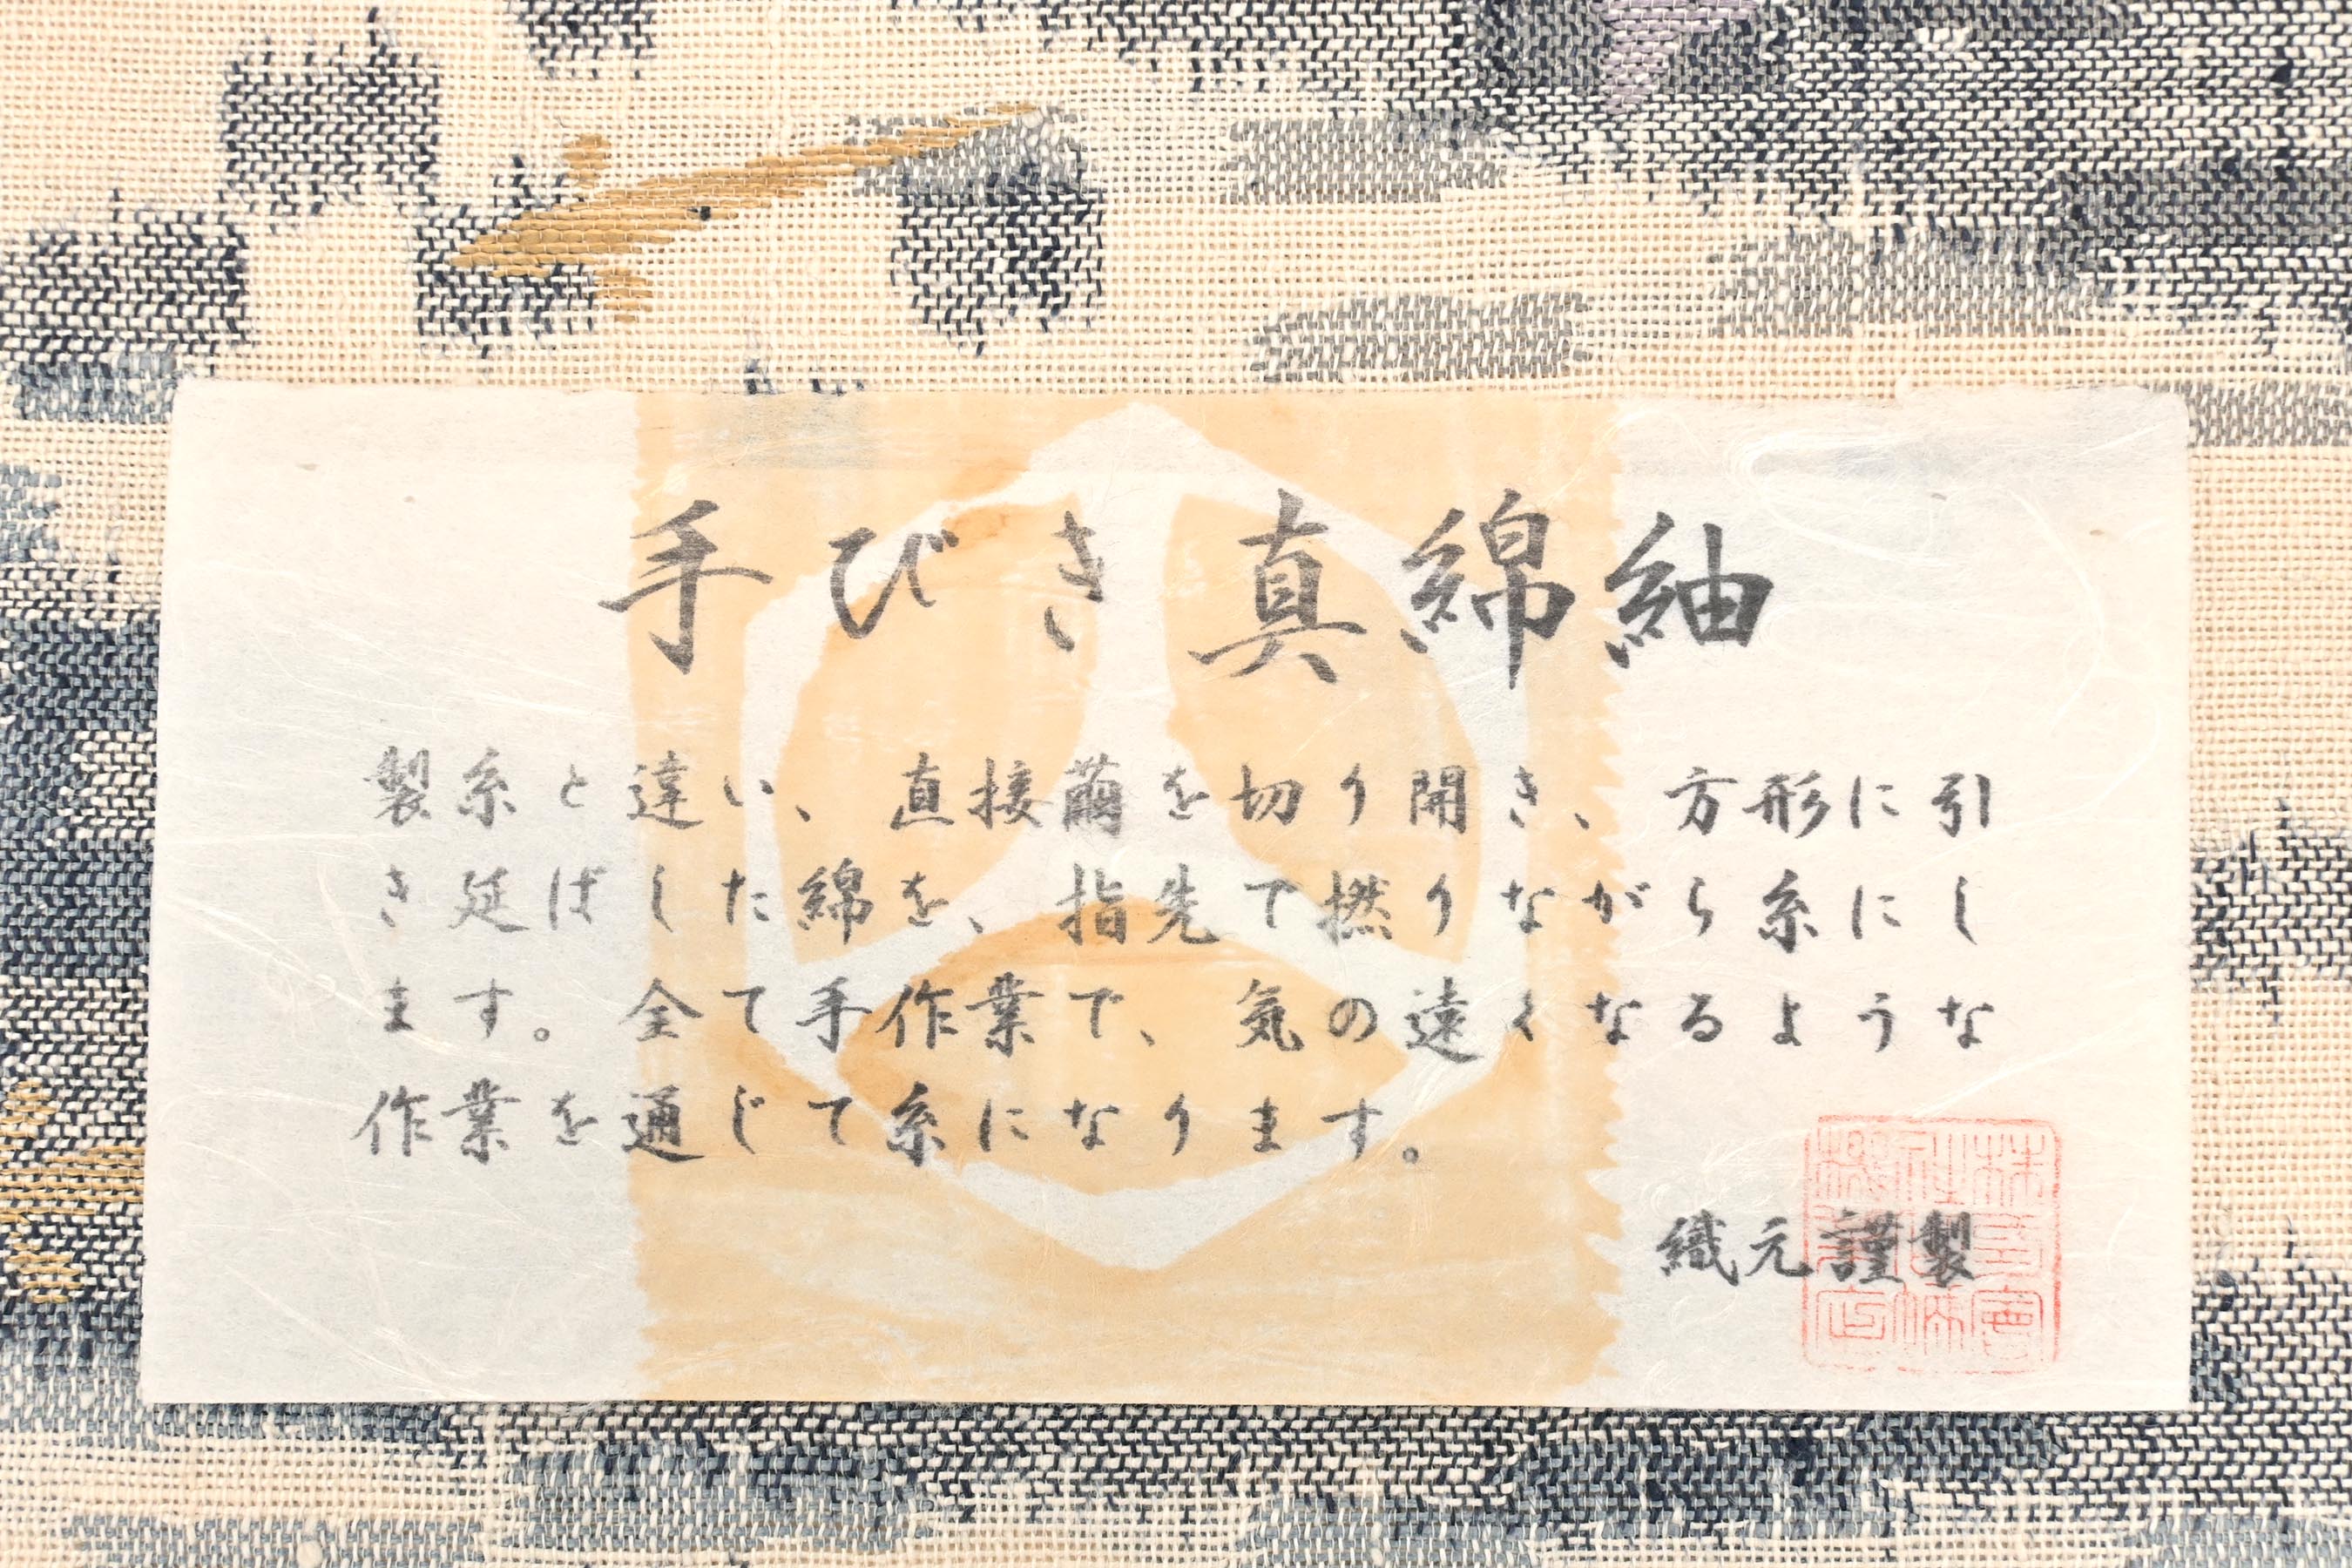 手びき真綿紬
製糸と違い、直接繭を切り開き、方形に引
き延ばした綿を、指先で撚りながら糸にし
ます。全て手作業で、気の遠くなるような
作業を通じて糸になります。
織元謹製